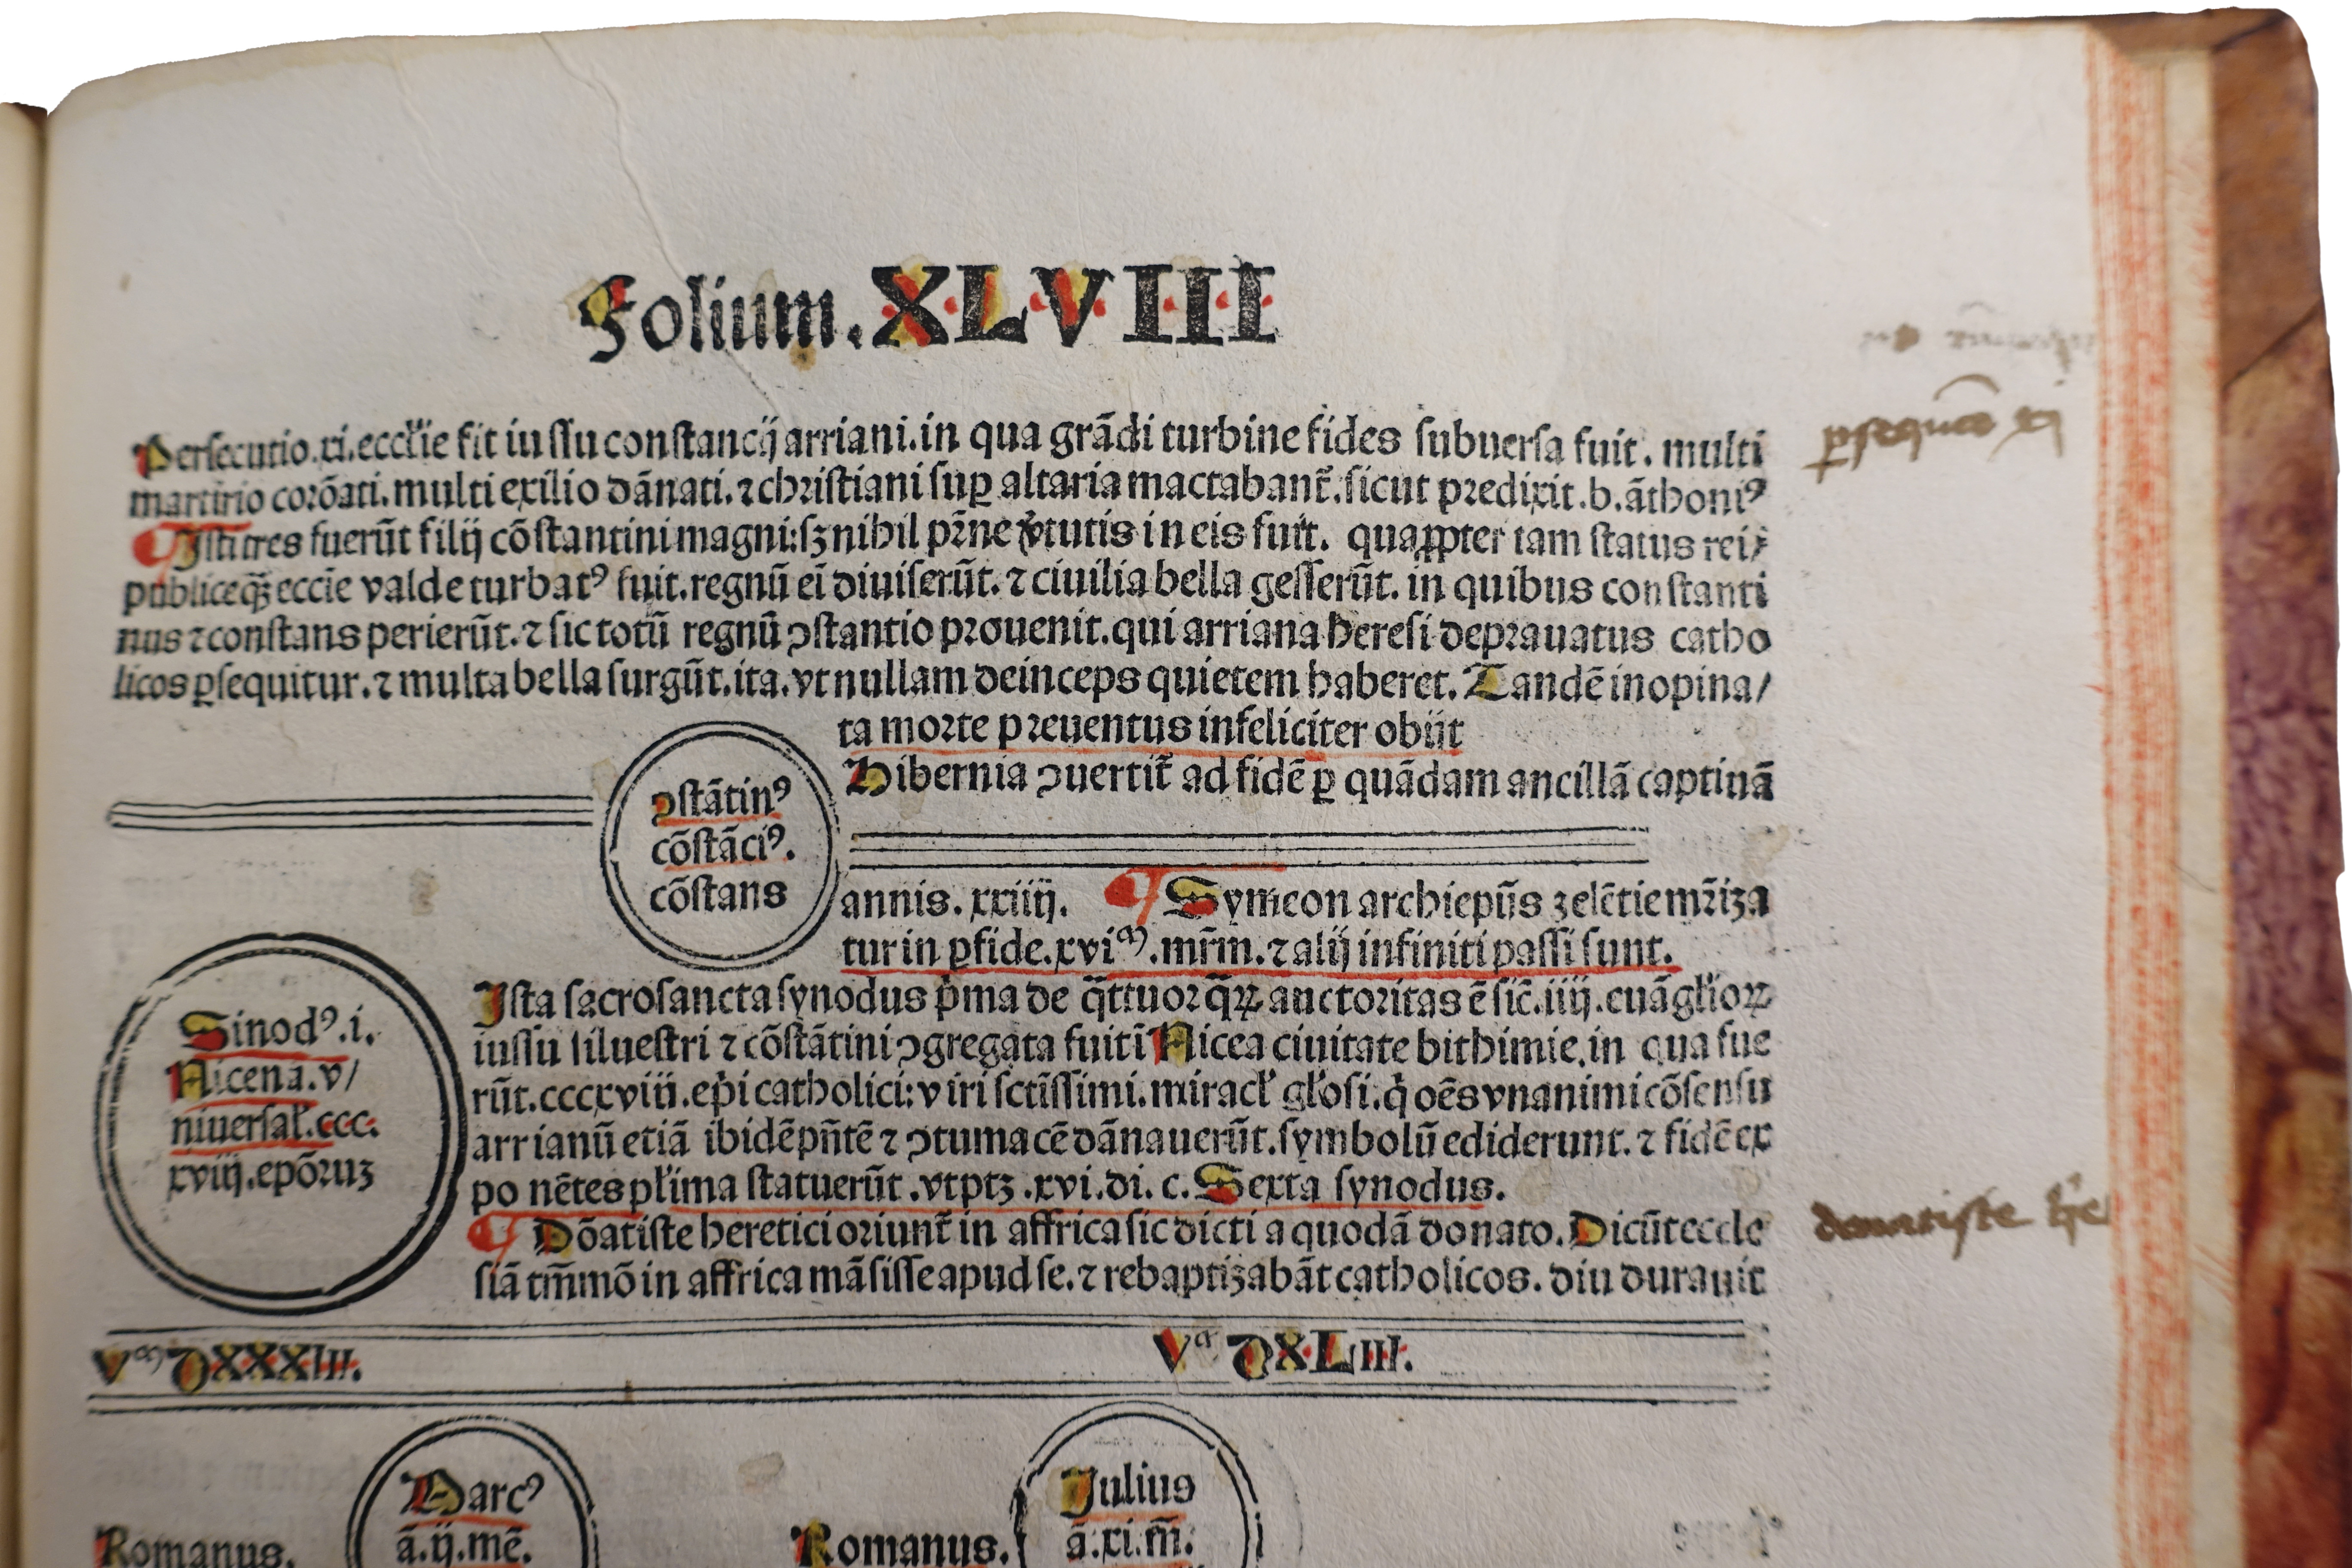 Folium. XLVIII
Persecutio.xi.eccľie fit iussu constancij arriani.in qua grãdi turbine fides subuersa fuit. multi
martirio corõati.multi exilio dãnati.⁊ christiani suꝑ altaria mactabant̃.sicut predixit.b.ãthoniꝰ
Isti tres fuerũt filij cõstantini magni:sꝫ nihil pr̃ne v̓tutis in eis fuit. quaꝓpter tam status rei
publice qꝫ̃ eccĩe valde turbatꝰ fuit.regnũ eĩ diuiserũt.⁊ ciuilia bella gesserũt. in quibus constanti
nus ⁊ constans perierũt.⁊ sic totũ regnũ ꝯstantio prouenit.qui arriana heresi deprauatus catho
licos ꝑsequitur.⁊ multa bella surgũt.ita.vt nullam deinceps quietem haberet. Tandẽ inopina/
ta morte preuentus infeliciter obijt
Hibernia ꝯuertit̃ ad fidẽ ꝑ quãdam ancillã captiuã
ꝯstãtinꝰ
cõstãciꝰ.
cõstans
annis. xxiiij. Symeon archiepũs zelẽtie mr̃iza
tur in ꝑfide.xviᵃ⁾.mr̃m.⁊ alij infiniti passi sunt.
Sinodꝰ.i.
Nicena.v/
niuersaľ.ccc.
xviij.epõruꝫ
Ista sacrosancta synodus p̓ma de q̃ttuor qꝝ̃ auctoritas ẽ sic̃.iiij.euãgľioꝝ
iussu siluestri ⁊ cõstãtini ꝯgregata fuit ĩ Nicea ciuitate bithimie.in qua fue
rũt.cccxviii.ep̃i catholici: viri sctĩssimi.miracľ gľosi.q̓ oẽs vnanimi cõsensu
arrianũ etiã ibidẽ pñtẽ ⁊ ꝯtumacẽ dãnauerũt.symbolũ ediderunt.⁊ fidẽ ex
po nẽtes pľima statuerũt .vt ptꝫ .xvi.di. c. Sexta synodus.
Dõatiste heretici oriunt̃ in affrica sic dicti a quodã donato. Dicũt eccle
siã tm̃mõ in affrica mãsisse apud se.⁊ rebaptizabãt catholicos. diu durauit
Vᵃ⁾ DXXXIII.
Vᵃ DXLIII.
Marcꝰ
ã.ij.mẽ.
Romanus.
Julius
ã.xi.m̃.
Romanus.
ꝑsequuc̃o xj
donatiste